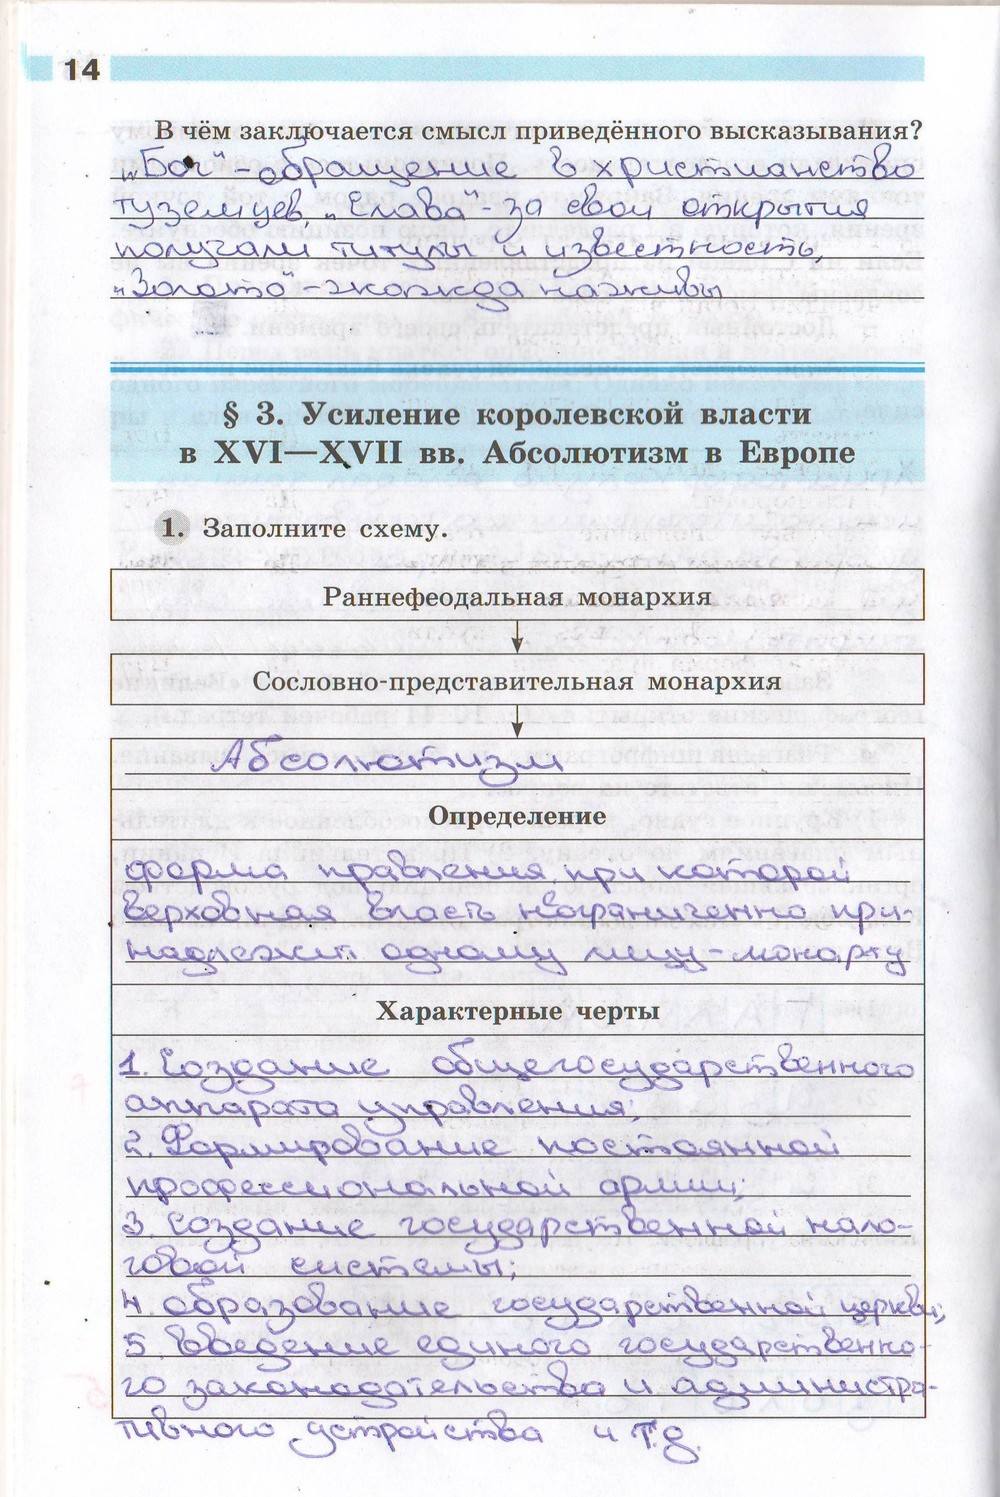 14
В чём заключается смысл приведённого высказывания?
„Бог"-обращение в христианство
туземцев „Слава"-за свои открытия
получали титулы и известность,
„Золото"-жажда наживы
§ 3. Усиление королевской власти
в XVI—XVII вв. Абсолютизм в Европе
1. Заполните схему.
Раннефеодальная монархия
Сословно-представительная монархия
Абсолютизм
Определение
форма правления, при которой
верховная власть неограниченно при-
надлежит одному лицу-монарху
Характерные черты
1. Создание общегосударственного
аппарата управления;
2. Формирование постоянной
профессиональной армии;
3 Создание государственной нало-
говой системы;
4. образование государственной церкви;
5. введение единого государственно-
го законодательства и администра-
тивного устройства и т.д.